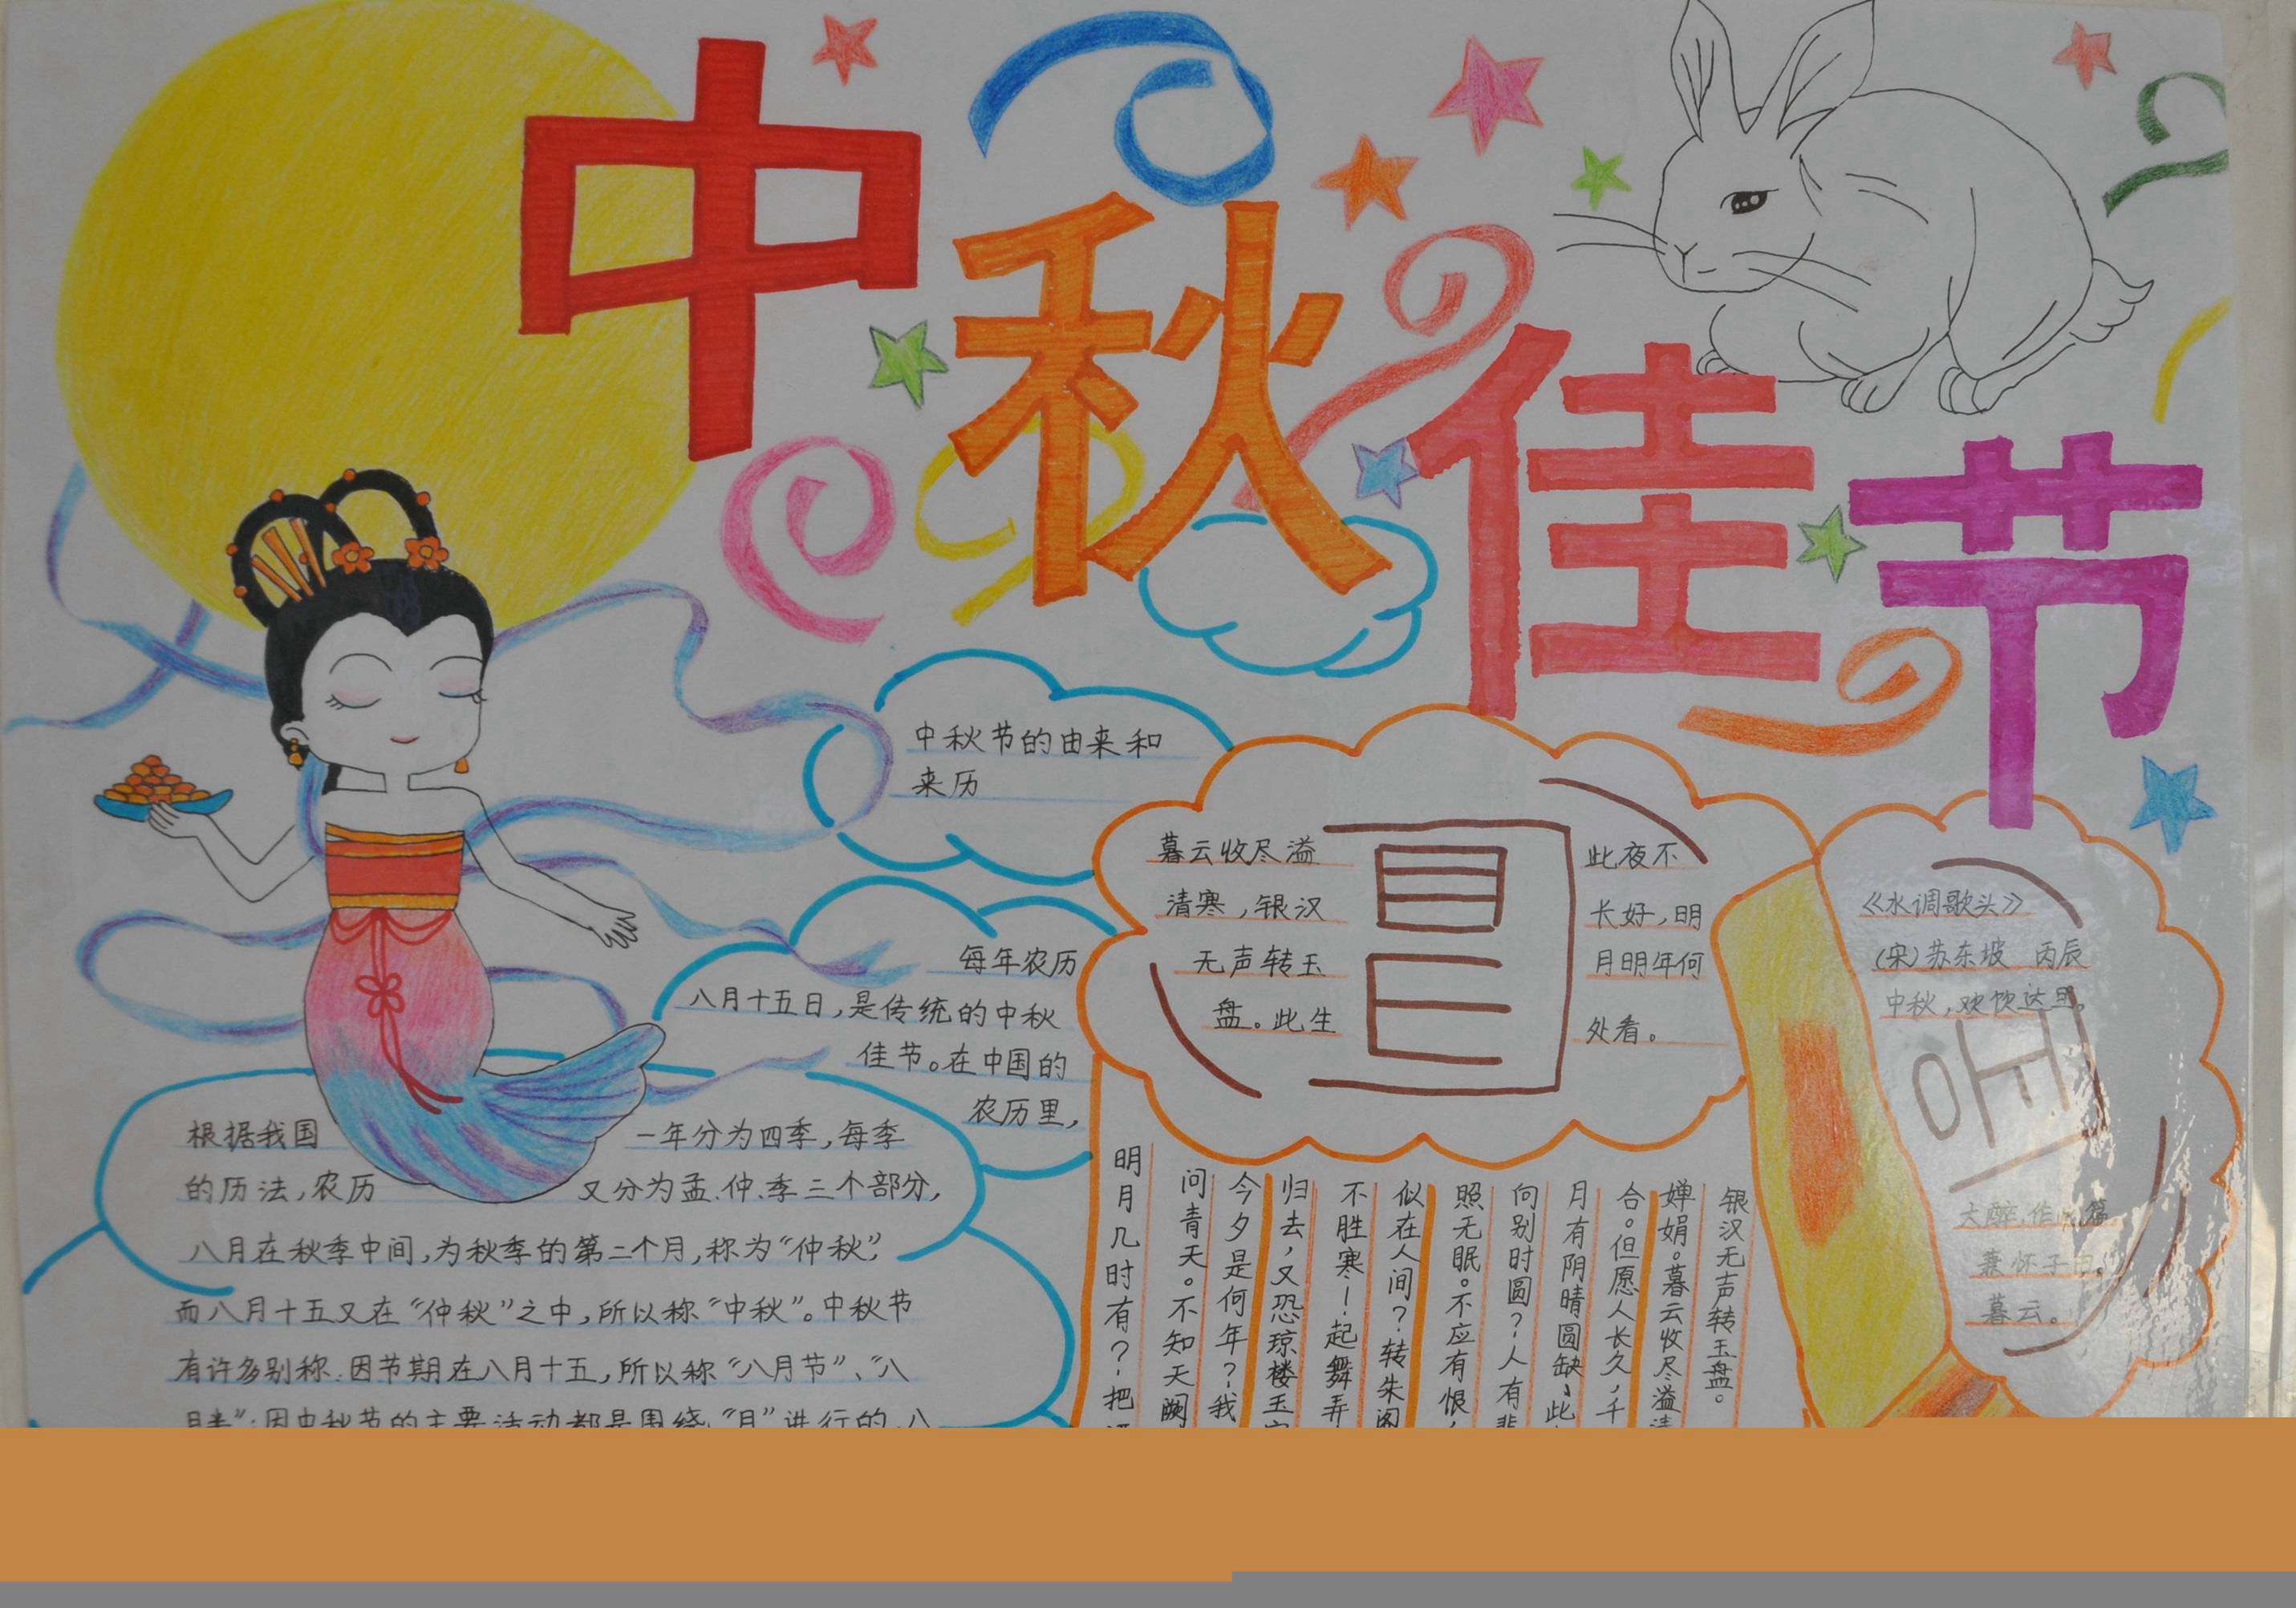 中秋佳节
中秋节的由来和
来历
每年农历
八月十五日，是传统的中秋
佳节。在中国的
农历里，
根据我国
一年分为四季，每季
的历法，农历
又分为孟.仲.季三个部分，
八月在秋季中间，为秋季的第二个月，称为“仲秋”，
而八月十五又在“仲秋”之中，所以称“中秋”。中秋节
有许多别称：因节期在八月十五，所以称“八月节”、“八
因中秋节的主要活动都是围绕“月”进行的，八
暮云收尽溢
清寒，银汉
无声转玉
盘。此生
此夜不
长好，明
月明年何
处看。
《水调歌头》
（宋）苏东坡 丙辰
中秋，欢饮达旦，
大醉，作 篇
兼怀子
暮云。
明月几时有？把
问青天。不知天阙
今夕是何年？我
归去，又恐琼楼玉
不胜寒！起舞弄
似在人间？转朱阁
照无眠。不应有恨，
向别时圆？人有
月有阴晴圆缺，此
合。但愿人长久，千
婵娟。暮云收尽溢
银汉无声转玉盘。